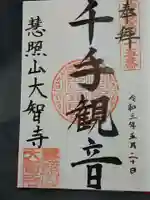 奉拝
令和三年五月二十日
千手観音
慧照山大智寺